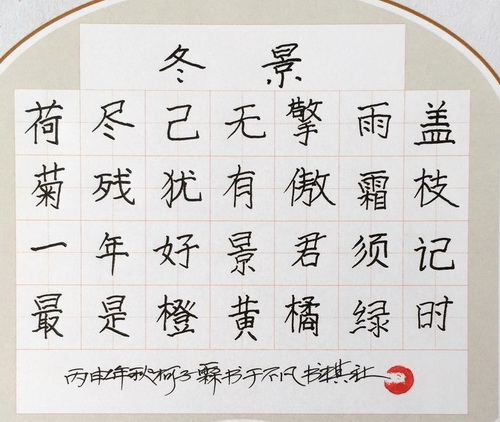 冬景
荷尽己无擎雨盖
菊残犹有傲霜枝
一年好景君须记
最是橙黄橘绿时
丙申年秋柯子霖书于不凡书棋社